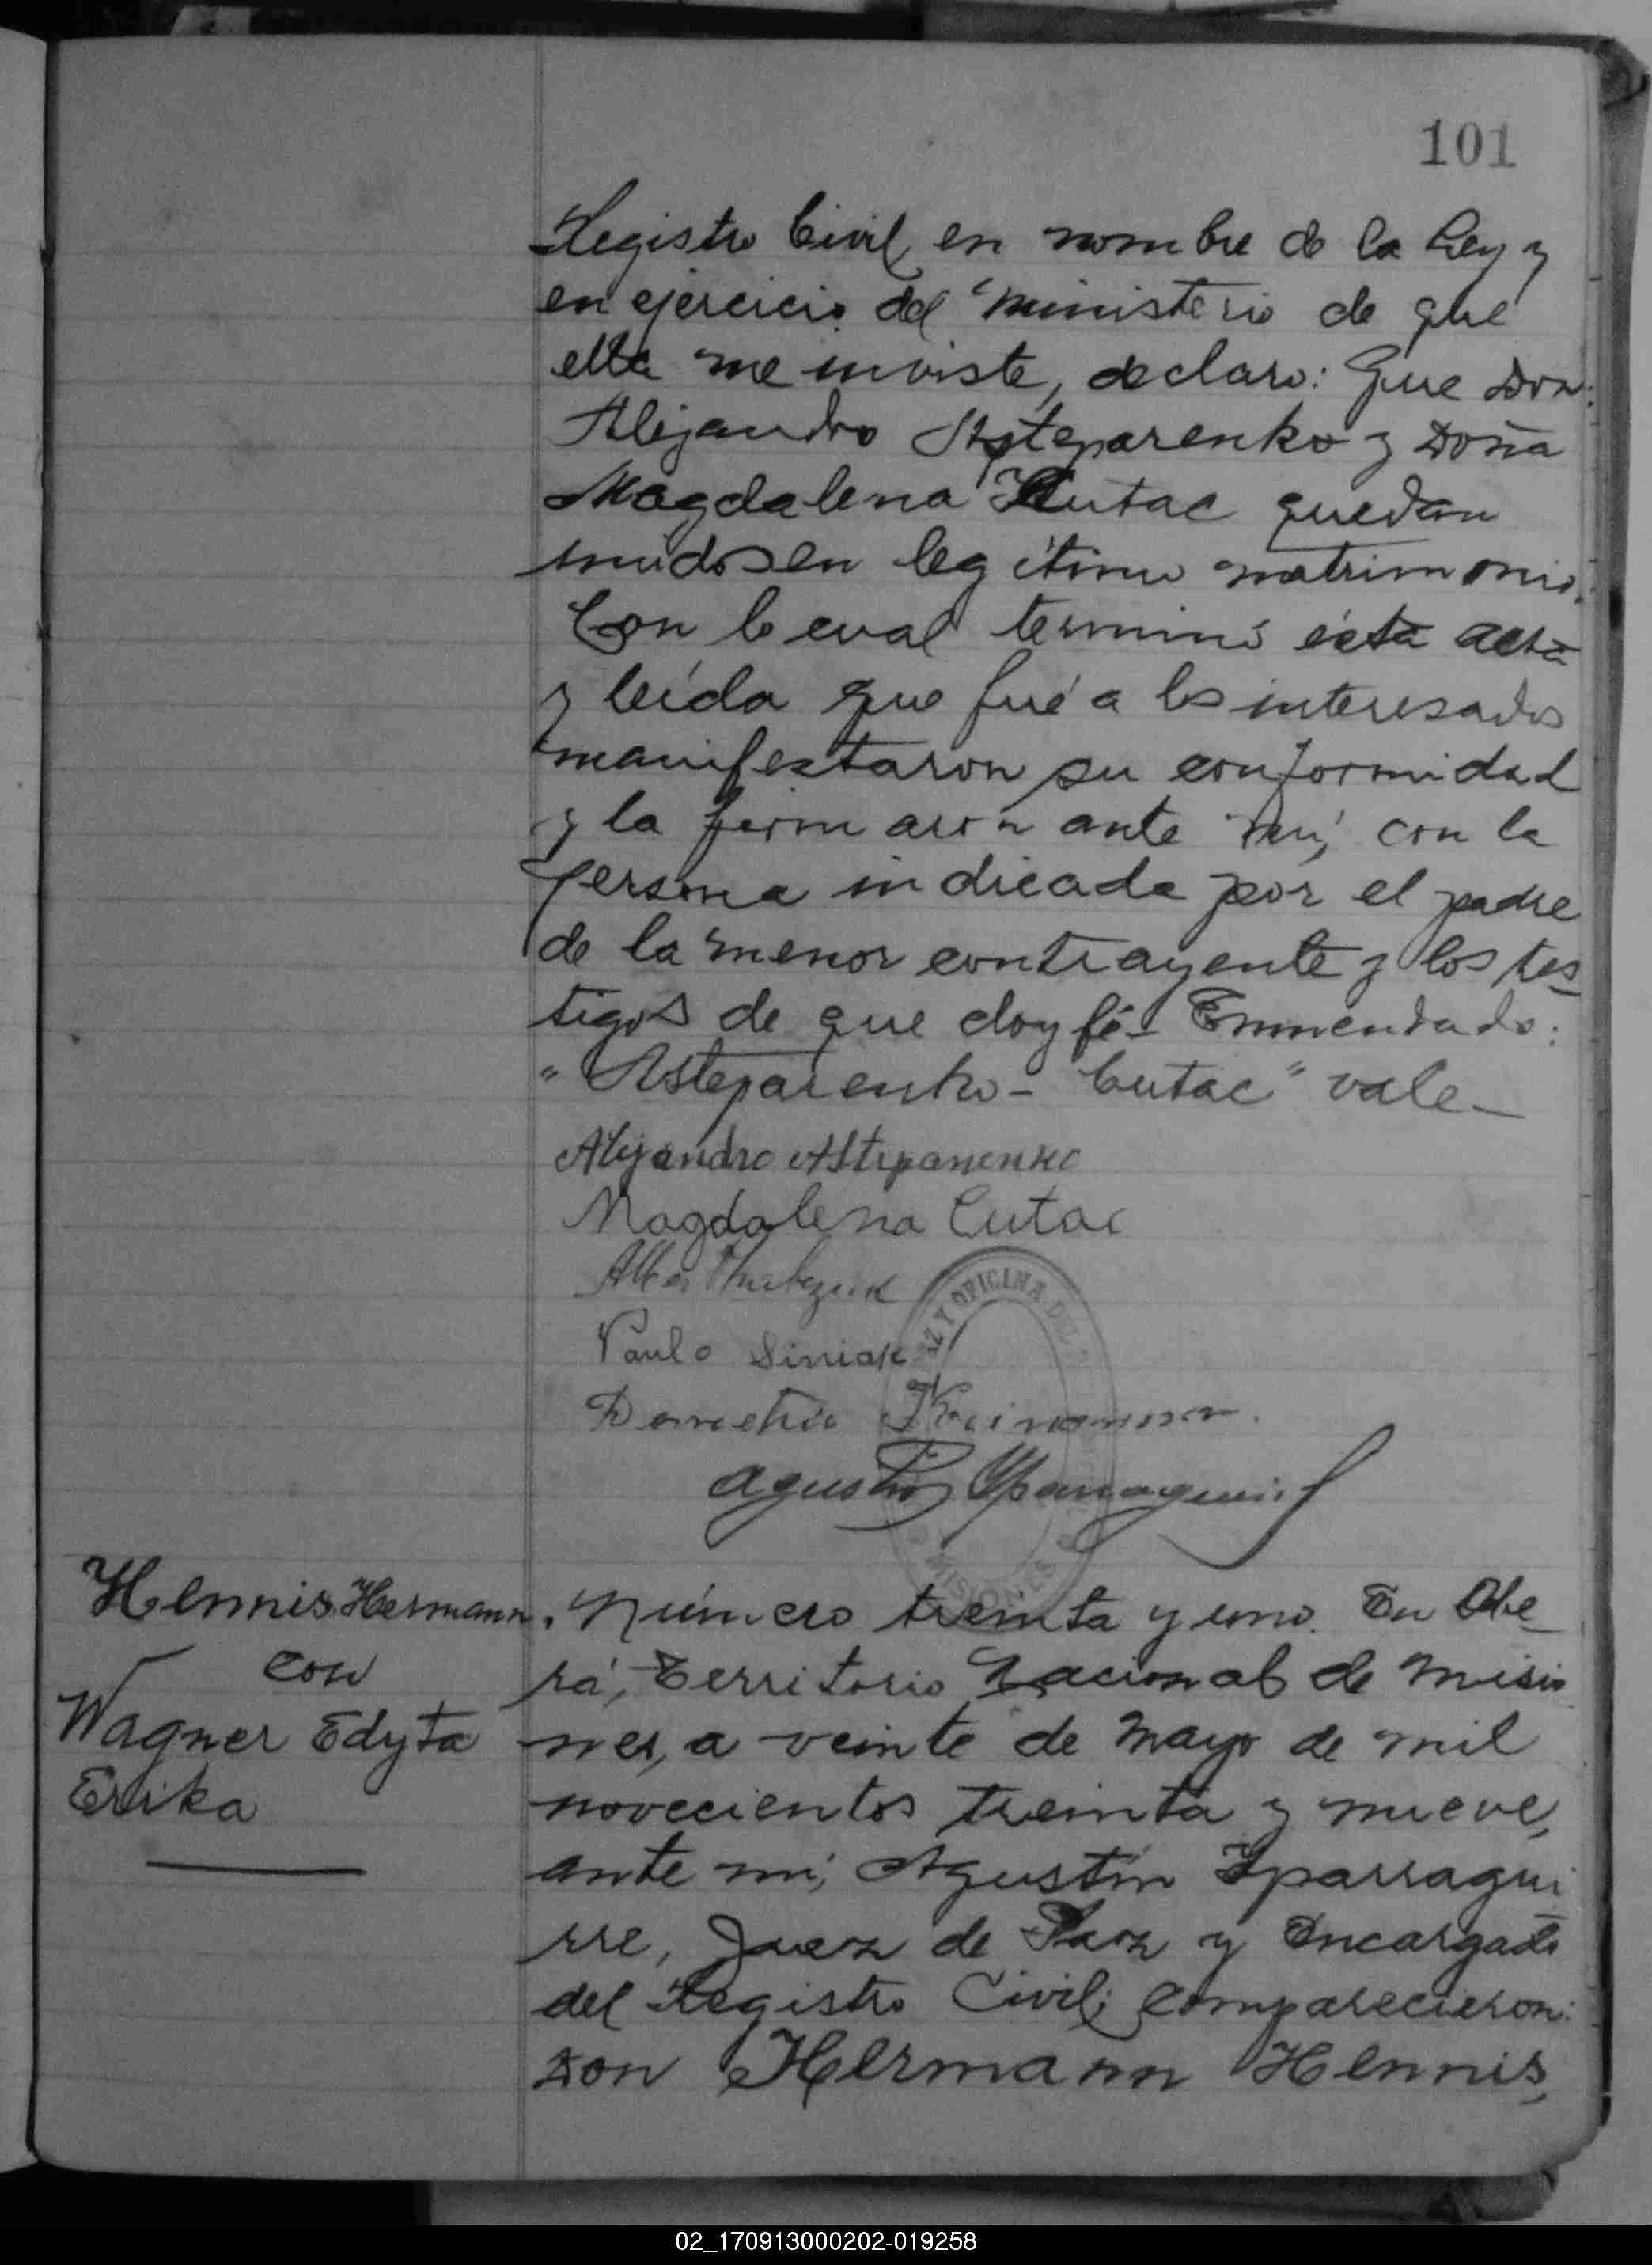 101
Registro Civil, en nombre de la Ley y
en ejercicio del ministerio de que
ella me inviste, declaro: Que Don:
Alejandro Asteparenko y Doña
Magdalena Cutac quedan
unidos en legítimo matrimonio.
Con lo cual terminó ésta acta
y leída que fué a los interesados
manifestaron su conformidad
y la firmaron ante mí, con la
persona indicada por el padre
de la menor contrayente y los tes_
tigos de que doy fé_ Enmendado:
"Asteparenko - Cutac" vale_
Alejandro
Magdalena Cutac
Paulo Siniak
Agustín Yparraguirre
OFICINA DEL
MISIONES
Hennis Hermann
con
Wagner Edyta
Erika
Número treinta y uno. En Obe_
rá, Territorio Nacional de Misio
nes, a veinte de Mayo de mil
novecientos treinta y nueve,
ante mí, Agustín Yparragui
rre, Juez de Paz y Encargado
del Registro Civil; comparecieron:
Don Hermann Hennis,
02_170913000202-019258